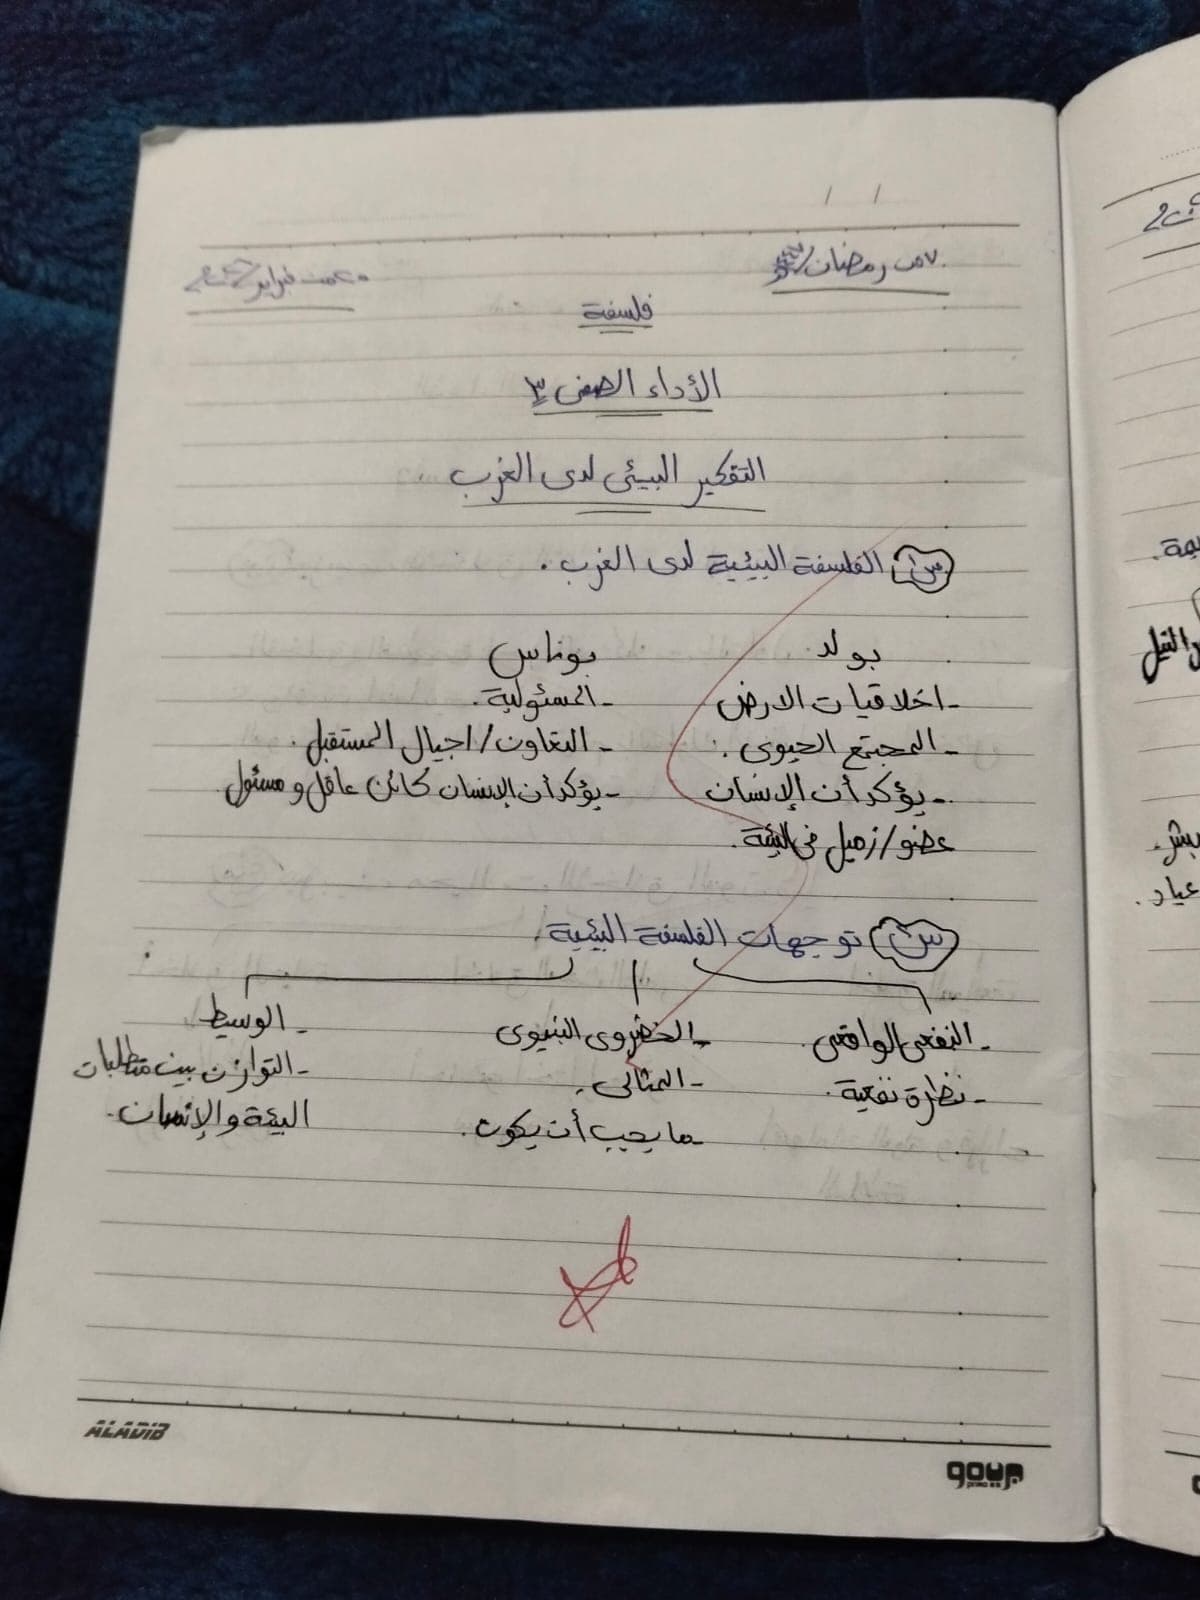 من رمضان/
من فبراير
فلسفة
الأداء الصفى ٣
التفكير البيئى لدى الغرب
س١ الفلسفة البيئية لدى الغرب.
بولد
- اخلاقيات الارض
- المجتمع الحيوى.
- يؤكد أن الإنسان
عضو/زميل فى البيئة.
يوناس
- المسئولية.
- التعاون/اجيال المستقبل.
- يؤكد أن الإنسان كائن عاقل و مسئول
س٢ توجهات الفلسفة البيئية.
- النفعى الواقعى.
- نظرة نفعية.
- الخضروى البنيوى
- المثالى.
- ما يجب أن يكون.
- الوسيط
- التوازن بين متطلبات
البيئة والإنسان.
ALADIB
يمة.
بشر.
عياد.